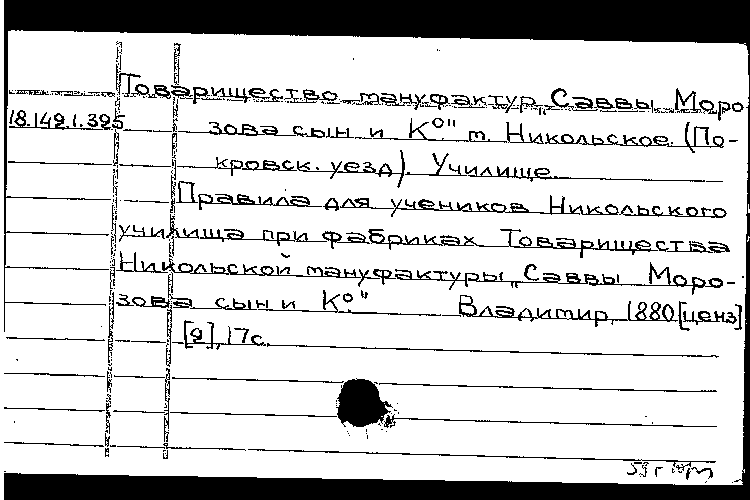 Товарищество мануфактур „Саввы Моро-
18.149.1.395 зова сын и К⁰" м. Никольское. (По-
кровск. уезд). Училище.
Правила для учеников Никольского
училища при фабриках Товарищества
Никольской мануфактуры „Саввы Моро-
зова сын и К⁰." Владимир, 1880 [ценз]
[2], 17с.